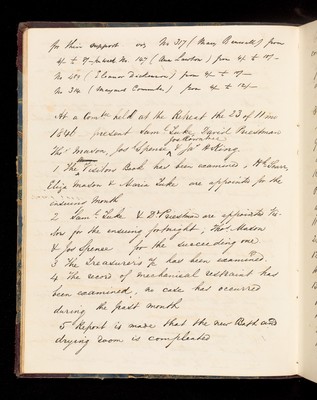 for their support viz No 317 (Mary Bennett) from
4/- to 8/- pr week No. 147 (Ann Lawton) from 4/- to 10/-
No 459 (Eleanor Dickinson) from 4/- to 10/-
No 314 (Margaret Coumbe) from 4/- to 12/-
At a Comtee held at the Retreat the 23 of 11 mo
1846 - present Saml Tuke, David Priestman
Jos Rowntree
Thos Mason, Jos Spence, & Jas H King.
1 The Visitors Book has been examined,
Eliza Mason & Maria Tuke are appointd for the
ensuing month
2 Saml Tuke & Dd Priestman are appointd Vis-
itors for the ensuing fortnight, Thos Mason
& Jos Spence for the succeeding one
3 The Treasurer's has been examined.
4 The record of mechanical restraint has
been examined, no case has occurred
during the past month
5 Report is made that the new Bath and
drying room is compleated